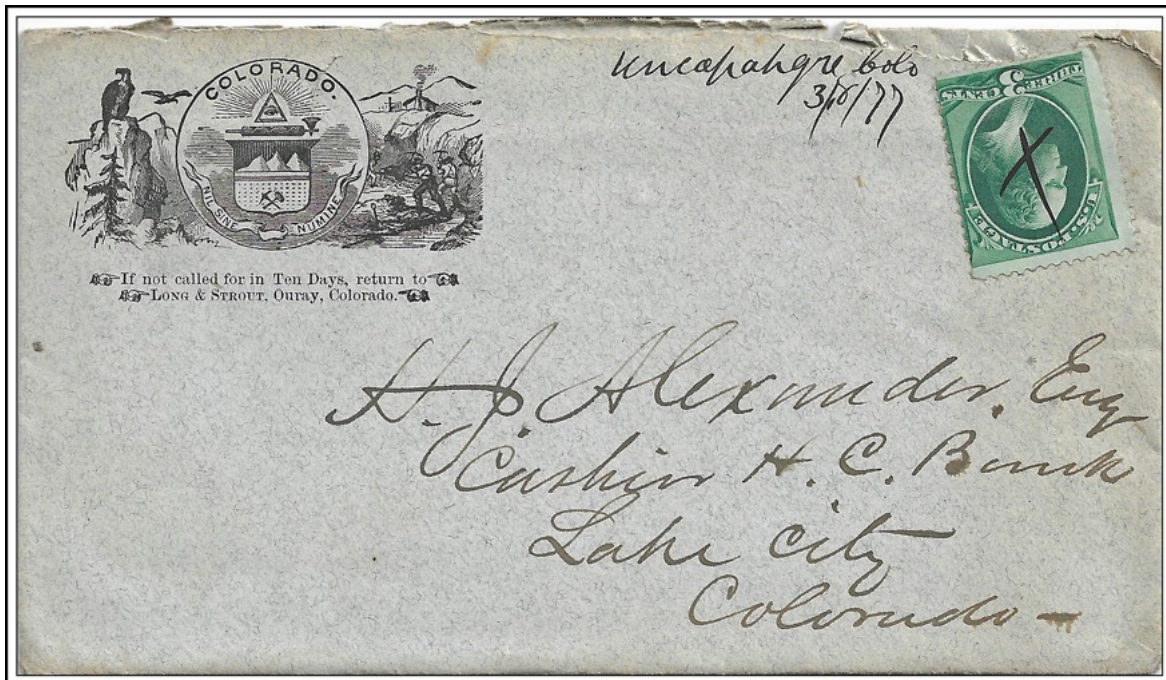 COLORADO.
NIL SINE NUMINE
If not called for in Ten Days, return to
LONG & STROUT, Ouray, Colorado.
Uncapahgre Colo
3/8/77
THREE 3 CENTS
U.S. POSTAGE
H. J. Alexander, Esq
Cashier H. C. Bank
Lake City
Colorado —